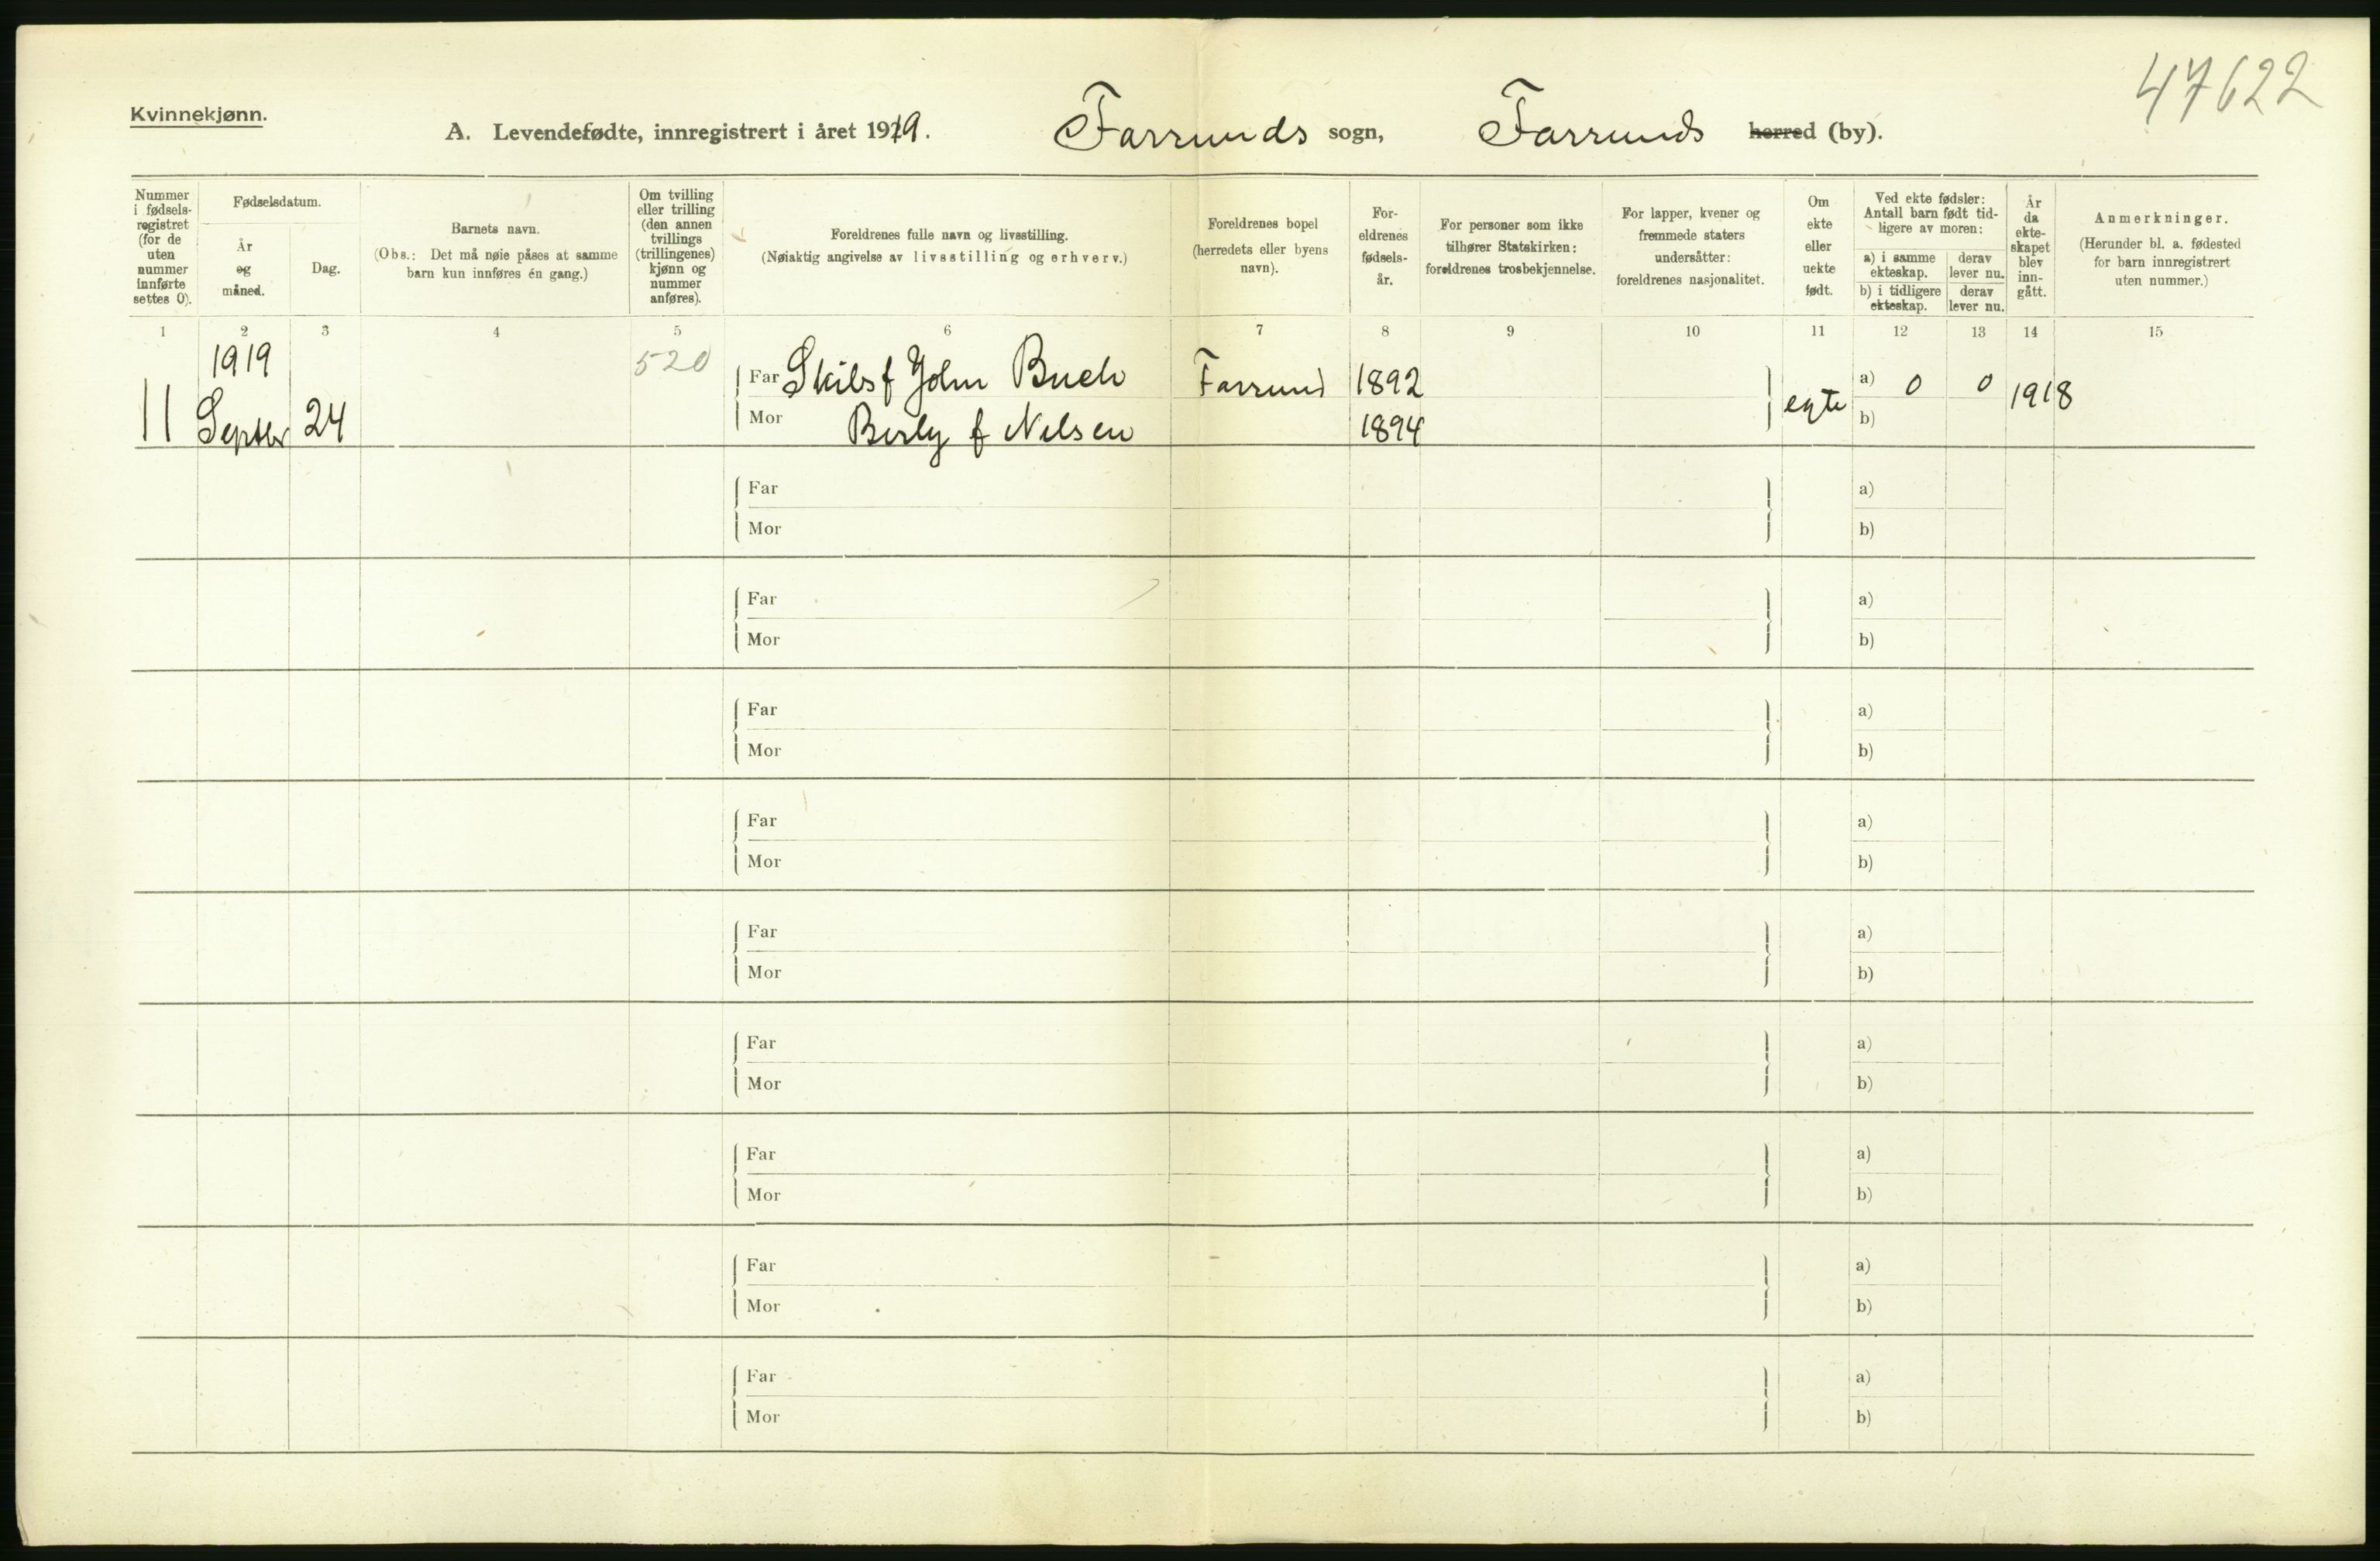 47622
Kvinnekjønn.
A. Levendefødte, innregistrert i året 1919. Farsunds sogn, Farsunds herred (by).
Nummer i fødselsregistret (for de uten nummer innførte settes 0).
Fødselsdatum.
År og måned.
Dag.
Barnets navn.
(Obs.: Det må nøie påses at samme barn kun innføres én gang.)
Om tvilling eller trilling (den annen tvillings (trillingenes) kjønn og nummer anføres).
Foreldrenes fulle navn og livsstilling.
(Nøiaktig angivelse av livsstilling og erhverv.)
Foreldrenes bopel
(herredets eller byens navn).
Foreldrenes fødselsår.
For personer som ikke tilhører Statskirken: foreldrenes trosbekjennelse.
For lapper, kvener og fremmede staters undersåtter: foreldrenes nasjonalitet.
Om ekte eller uekte født.
Ved ekte fødsler: Antall barn født tidligere av moren:
a) i samme ekteskap.
derav lever nu.
b) i tidligere ekteskap.
derav lever nu.
År da ekteskapet blev inngått.
Anmerkninger.
(Herunder bl. a. fødested for barn innregistrert uten nummer.)
1 2 3 4 5 6 7 8 9 10 11 12 13 14 15
1919 520
Far Skibsf John Buch Farsund 1892 a) 0 0
11 Septbr 24 egte 1918
Mor f Nilsen 1894 b)
Far a)
Mor b)
Far a)
Mor b)
Far a)
Mor b)
Far a)
Mor b)
Far a)
Mor b)
Far a)
Mor b)
Far a)
Mor b)
Far a)
Mor b)
Far a)
Mor b)